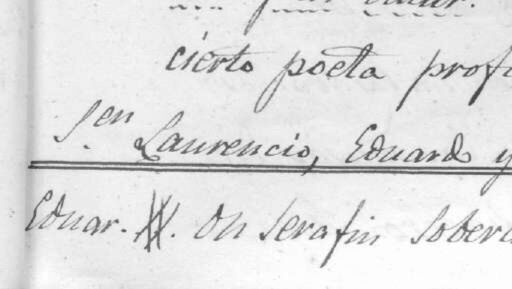 cierto poeta prof
S.en Laurencio, Eduardo y
Eduar. Un Serafin sober